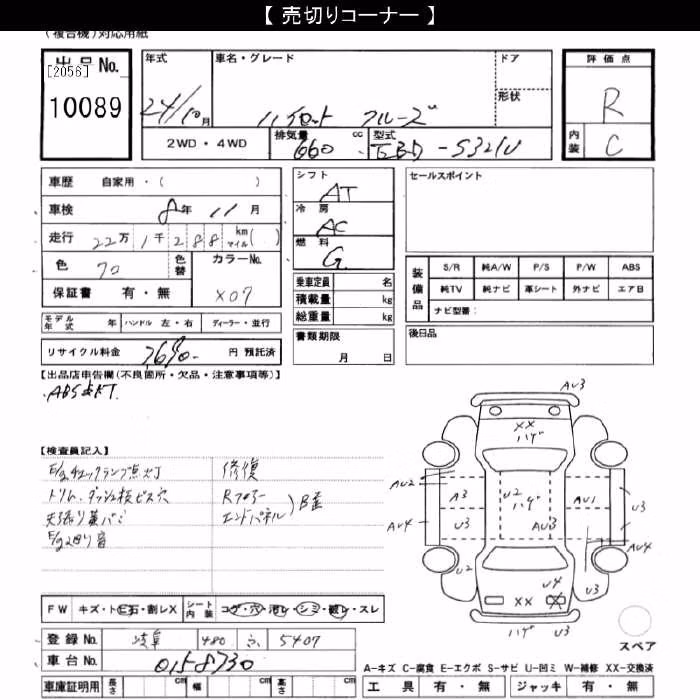 【 売切りコーナー 】
(複合機)対応用紙
出品No.
[2056]
10089
年式
24/10月
車名・グレード
ハイゼット クルーズ
ドア
形状
2WD・4WD
排気量
660
cc
型式
EBD-S321V
評価点
R
内装
C
車歴 自家用・( )
車検 8年 11月
走行 22万 1千 2 8 8 km マイル ( )
色 70
色替
カラーNo.
X07
保証書 有・無
モデル年式 年 ハンドル 左・右 ディーラー・並行
リサイクル料金 7690- 円 預託済
シフト
AT
冷房
AC
燃料
G
乗車定員 名
積載量 kg
総重量 kg
書類期限
月 日
セールスポイント
装備品
S/R 純A/W P/S P/W ABS
純TV 純ナビ 革シート 外ナビ エアB
ナビ型番:
後日品
【出品店申告欄(不良箇所・欠品・注意事項等)】
ABS点灯.
【検査員記入】
E/gチェックランプ点灯
トリム、ダッシュ板ビス穴
天張り蓋バミ
E/g回り音
修復
Rフロアー
エンドパネル
)B歪
AU3
XX
ハゲ
AU2
A3
U2
ハゲ
AU1
U3
AU4
U3
AU3
AU4
U2
U4
XX
U3
ハゲ
U3
スペア
FW キズ・トビ石・割レX
シート内装 コゲ・穴・汚レ・シミ・破レ・スレ
登録No. 岐阜 480 ふ 5407
車台No. 0158730
車庫証明用 長さ cm 幅 cm 高さ cm
A-キズ C-腐食 E-エクボ S-サビ U-凹ミ W-補修 XX-交換済
工具 有・無 ジャッキ 有・無